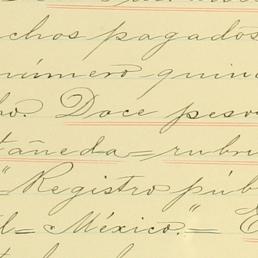 chos pagados
número quin
ho. Doce peso
tañeda= rubri
"Registro púb
il= México."= E